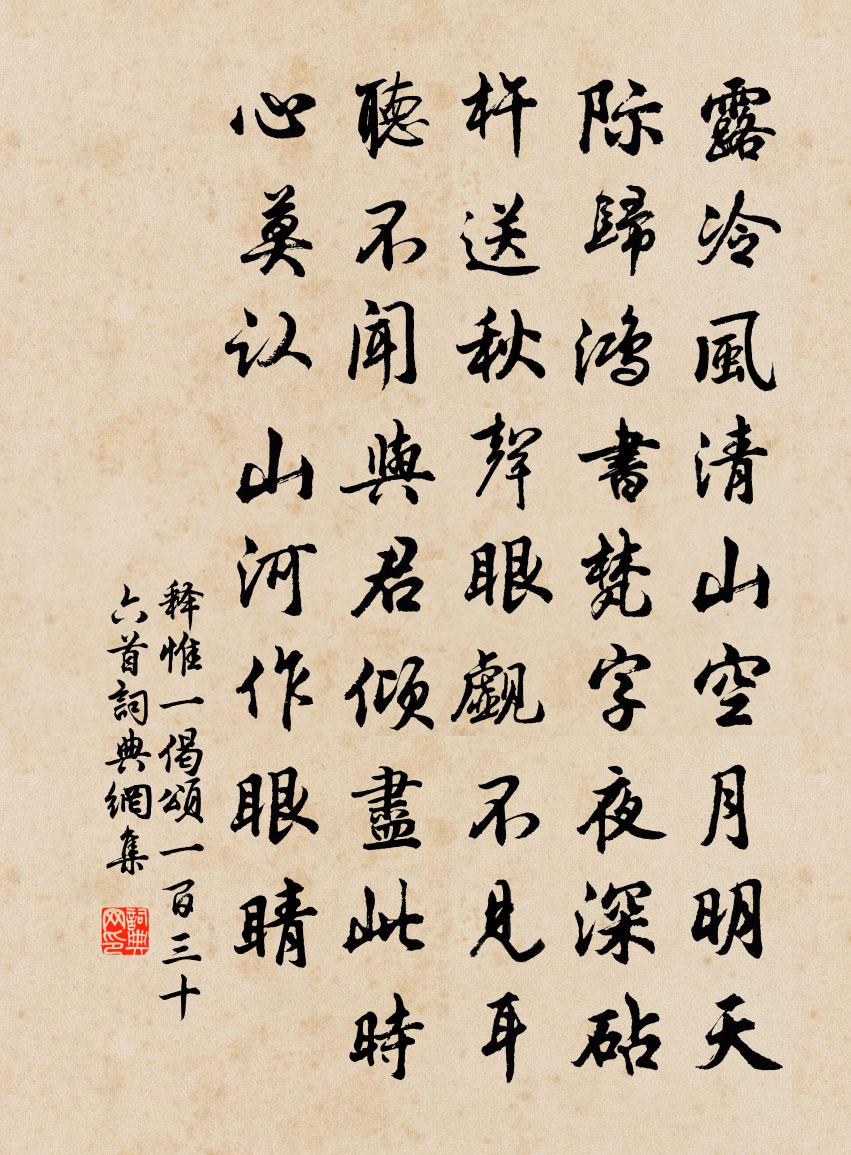 露冷風清山空月明天
际歸鴻書梵字夜深砧
杵送秋聲眼觑不見耳
聽不聞與君傾盡此時
心莫认山河作眼睛
释惟一偈頌一百三十
六首詞典網集
詞典网印